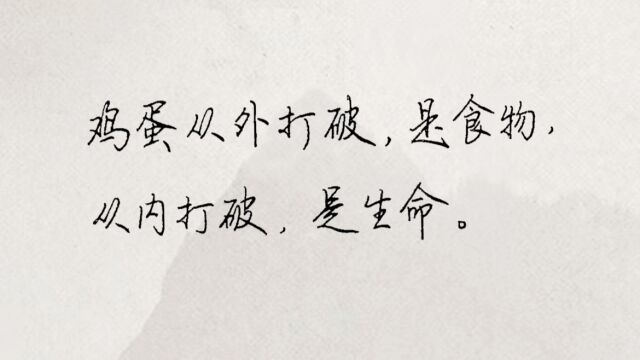 鸡蛋从外打破，是食物，
从内打破，是生命。